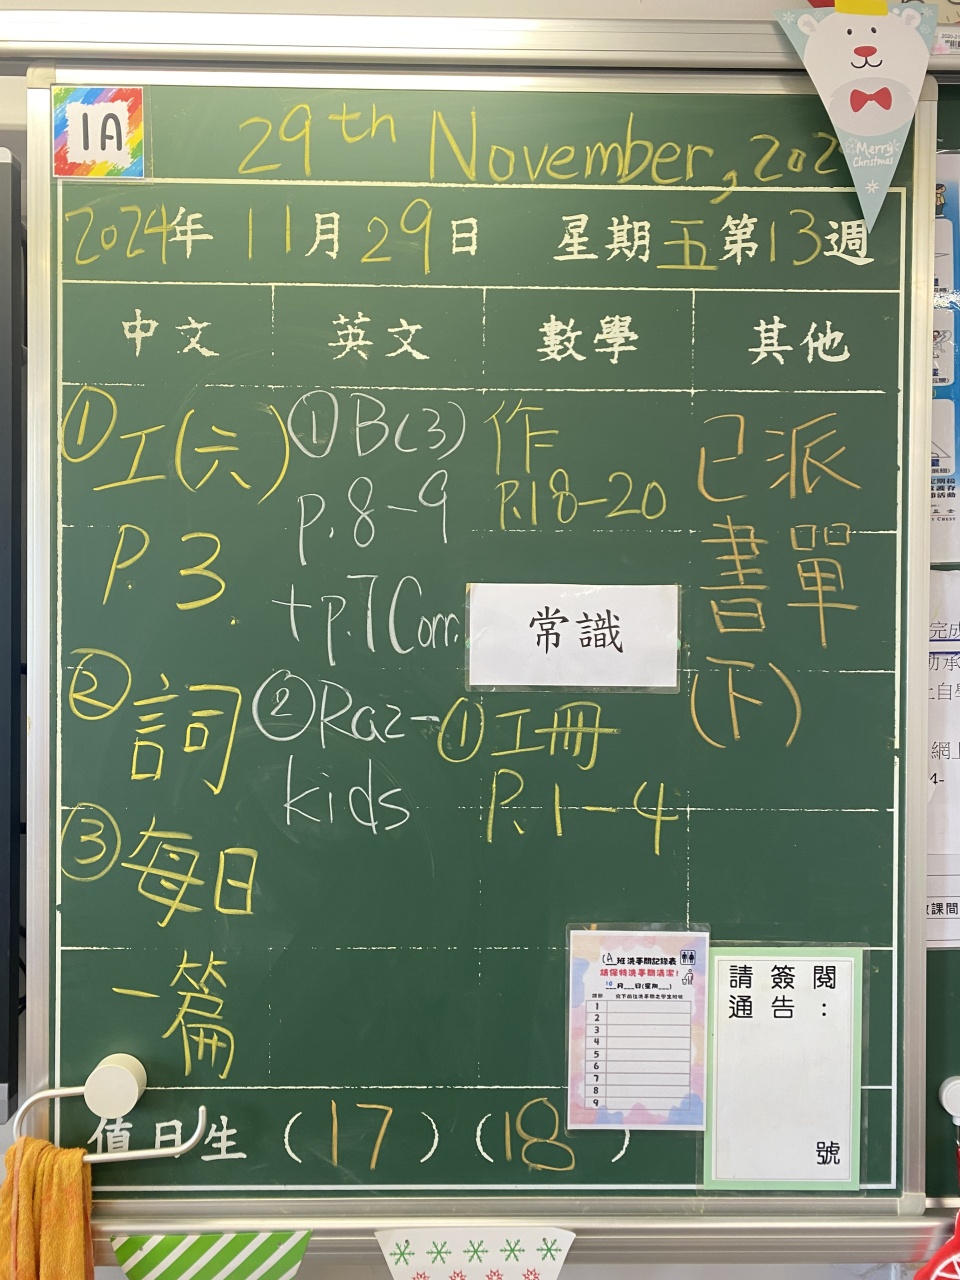 1A
29th November, 202
Merry
Christmas
2024年 11月29日 星期五第13週
中文 英文 數學 其他
①工(六)
P.3.
②詞
③每日
一篇
①B(3)
p.8-9
+p.7Corr.
②Raz-
kids
作
P.18-20
常識
①工冊
P.1-4
已派
書單
(下)
1A班洗手間記錄表
請保持洗手間清潔!
10月__日(星期__)
1
2
3
4
5
6
7
8
9
請簽閱
通告:
號
值日生 (17) (18)